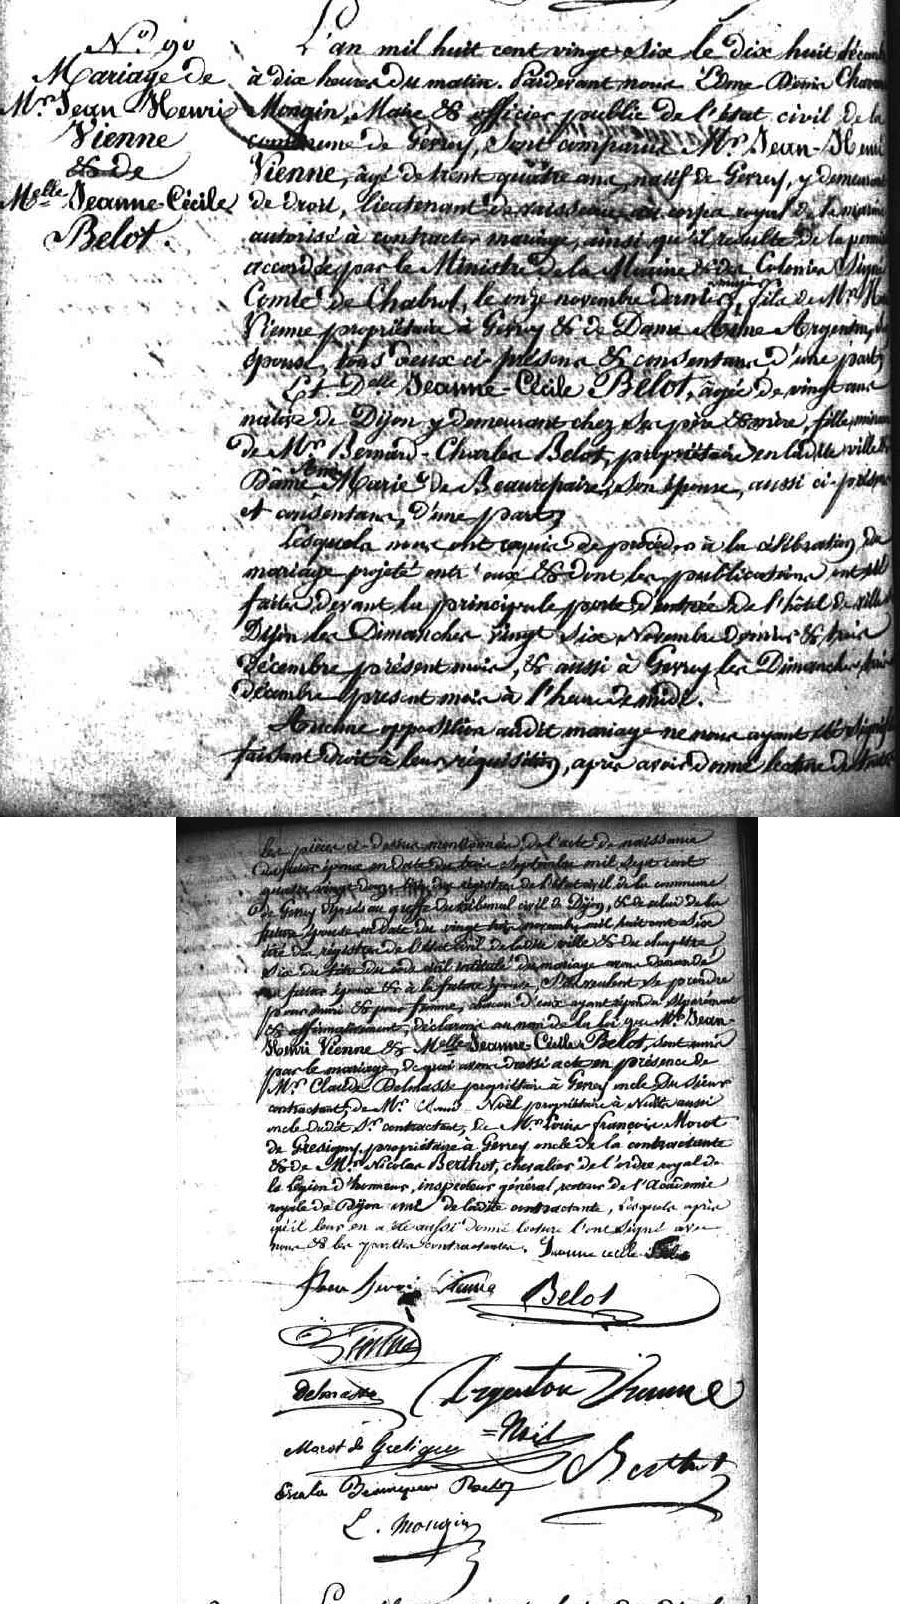 N.o 90
Mariage de
Mr. Jean Henri
Vienne
& de
Melle Jeanne-Cécile
Belot.
L'an mil huit cent vingt six le dix huit décem
à dix heures du matin. Pardevant nous Edme Denis Char
Mongin, Maire & officier public de l'état civil de la
commune de Gevrey, sont comparus Mr. Jean-Henri
Vienne, âgé de trente quatre ans, natif de Gevrey, y demeurant
de droit, lieutenant de vaisseau au corps royal de la marine
autorisé à contracter mariage, ainsi qu'il résulte de la permi
accordée par le Ministre de la Marine & des Colonies Signé
Comte de Chabrol, le onze novembre dernier, fils de Mr.
Vienne propriétaire à Gevrey & de Dame Argenton,
épouse, tous deux ci-présens & consentans, d'une part,
Et Delle Jeanne-Cécile Belot, âgée de vingt ans
native de Dijon y demeurant chez ses père & mère, fille mineure
de Mr. Bernard-Charles Belot, propriétaire en ladite ville &
Dame Marie de Beaurepaire, son épouse, aussi ci-présens
et consentans, d'une part,
Lesquels nous ont requis de procéder à la célébration du
mariage projeté entr'eux & dont les publications ont été
faites devant la principale porte d'entrée de l'hôtel de ville
Dijon les Dimanches vingt six Novembre dernier & trois
décembre présent mois, & aussi à Gevrey les Dimanches trois
décembre présent mois à l'heure de midi.
Aucune opposition audit mariage ne nous ayant été signif
faisant droit à leur réquisition, après avoir donné lecture de toutes
les pièces ci-dessus mentionnées, de l'acte de naissance
du futur époux en date du trois Septembre mil sept cent
quatre vingt douze tiré des registres de l'état civil de la commune
de Gevrey déposés au greffe du tribunal civil de Dijon, & de celui de la
future épouse en date du vingt trois novembre mil huit cent six
tiré des registres de l'état civil de ladite ville & du chapitre
six du titre du code civil intitulé du mariage avons demandé
au futur époux & à la future épouse, s'ils veulent se prendre
pour mari & pour femme, chacun d'eux ayant répondu séparément
& affirmativement, déclarons au nom de la loi que Mr. Jean-
Henri Vienne & Melle Jeanne-Cécile Belot sont unis
par le mariage, de quoi avons dressé acte en présence de
Mr. Claude Delmasse propriétaire à Gevrey oncle du sieur
contractant, de Mr. Noël propriétaire à Nuits aussi
oncle dudit Sr. contractant, de Mr. Louis François Morot
de Gresigny, propriétaire à Gevrey oncle de la contractante
& de Mr. Nicolas Berthot, chevalier de l'ordre royal de
la Légion d'honneur, inspecteur général, recteur de l'Académie
royale de Dijon ami de ladite contractante, Lesquels après
qu'il leur en a été aussi donné lecture l'ont signé avec
nous & les parties contractantes. Jeanne cecile Belot
Jean henri Vienne Belot
Vienne
Delmasse Argenton Vienne
Morot de Gresigny Noël Berthot
Beaurepaire Belot
E. Mongin